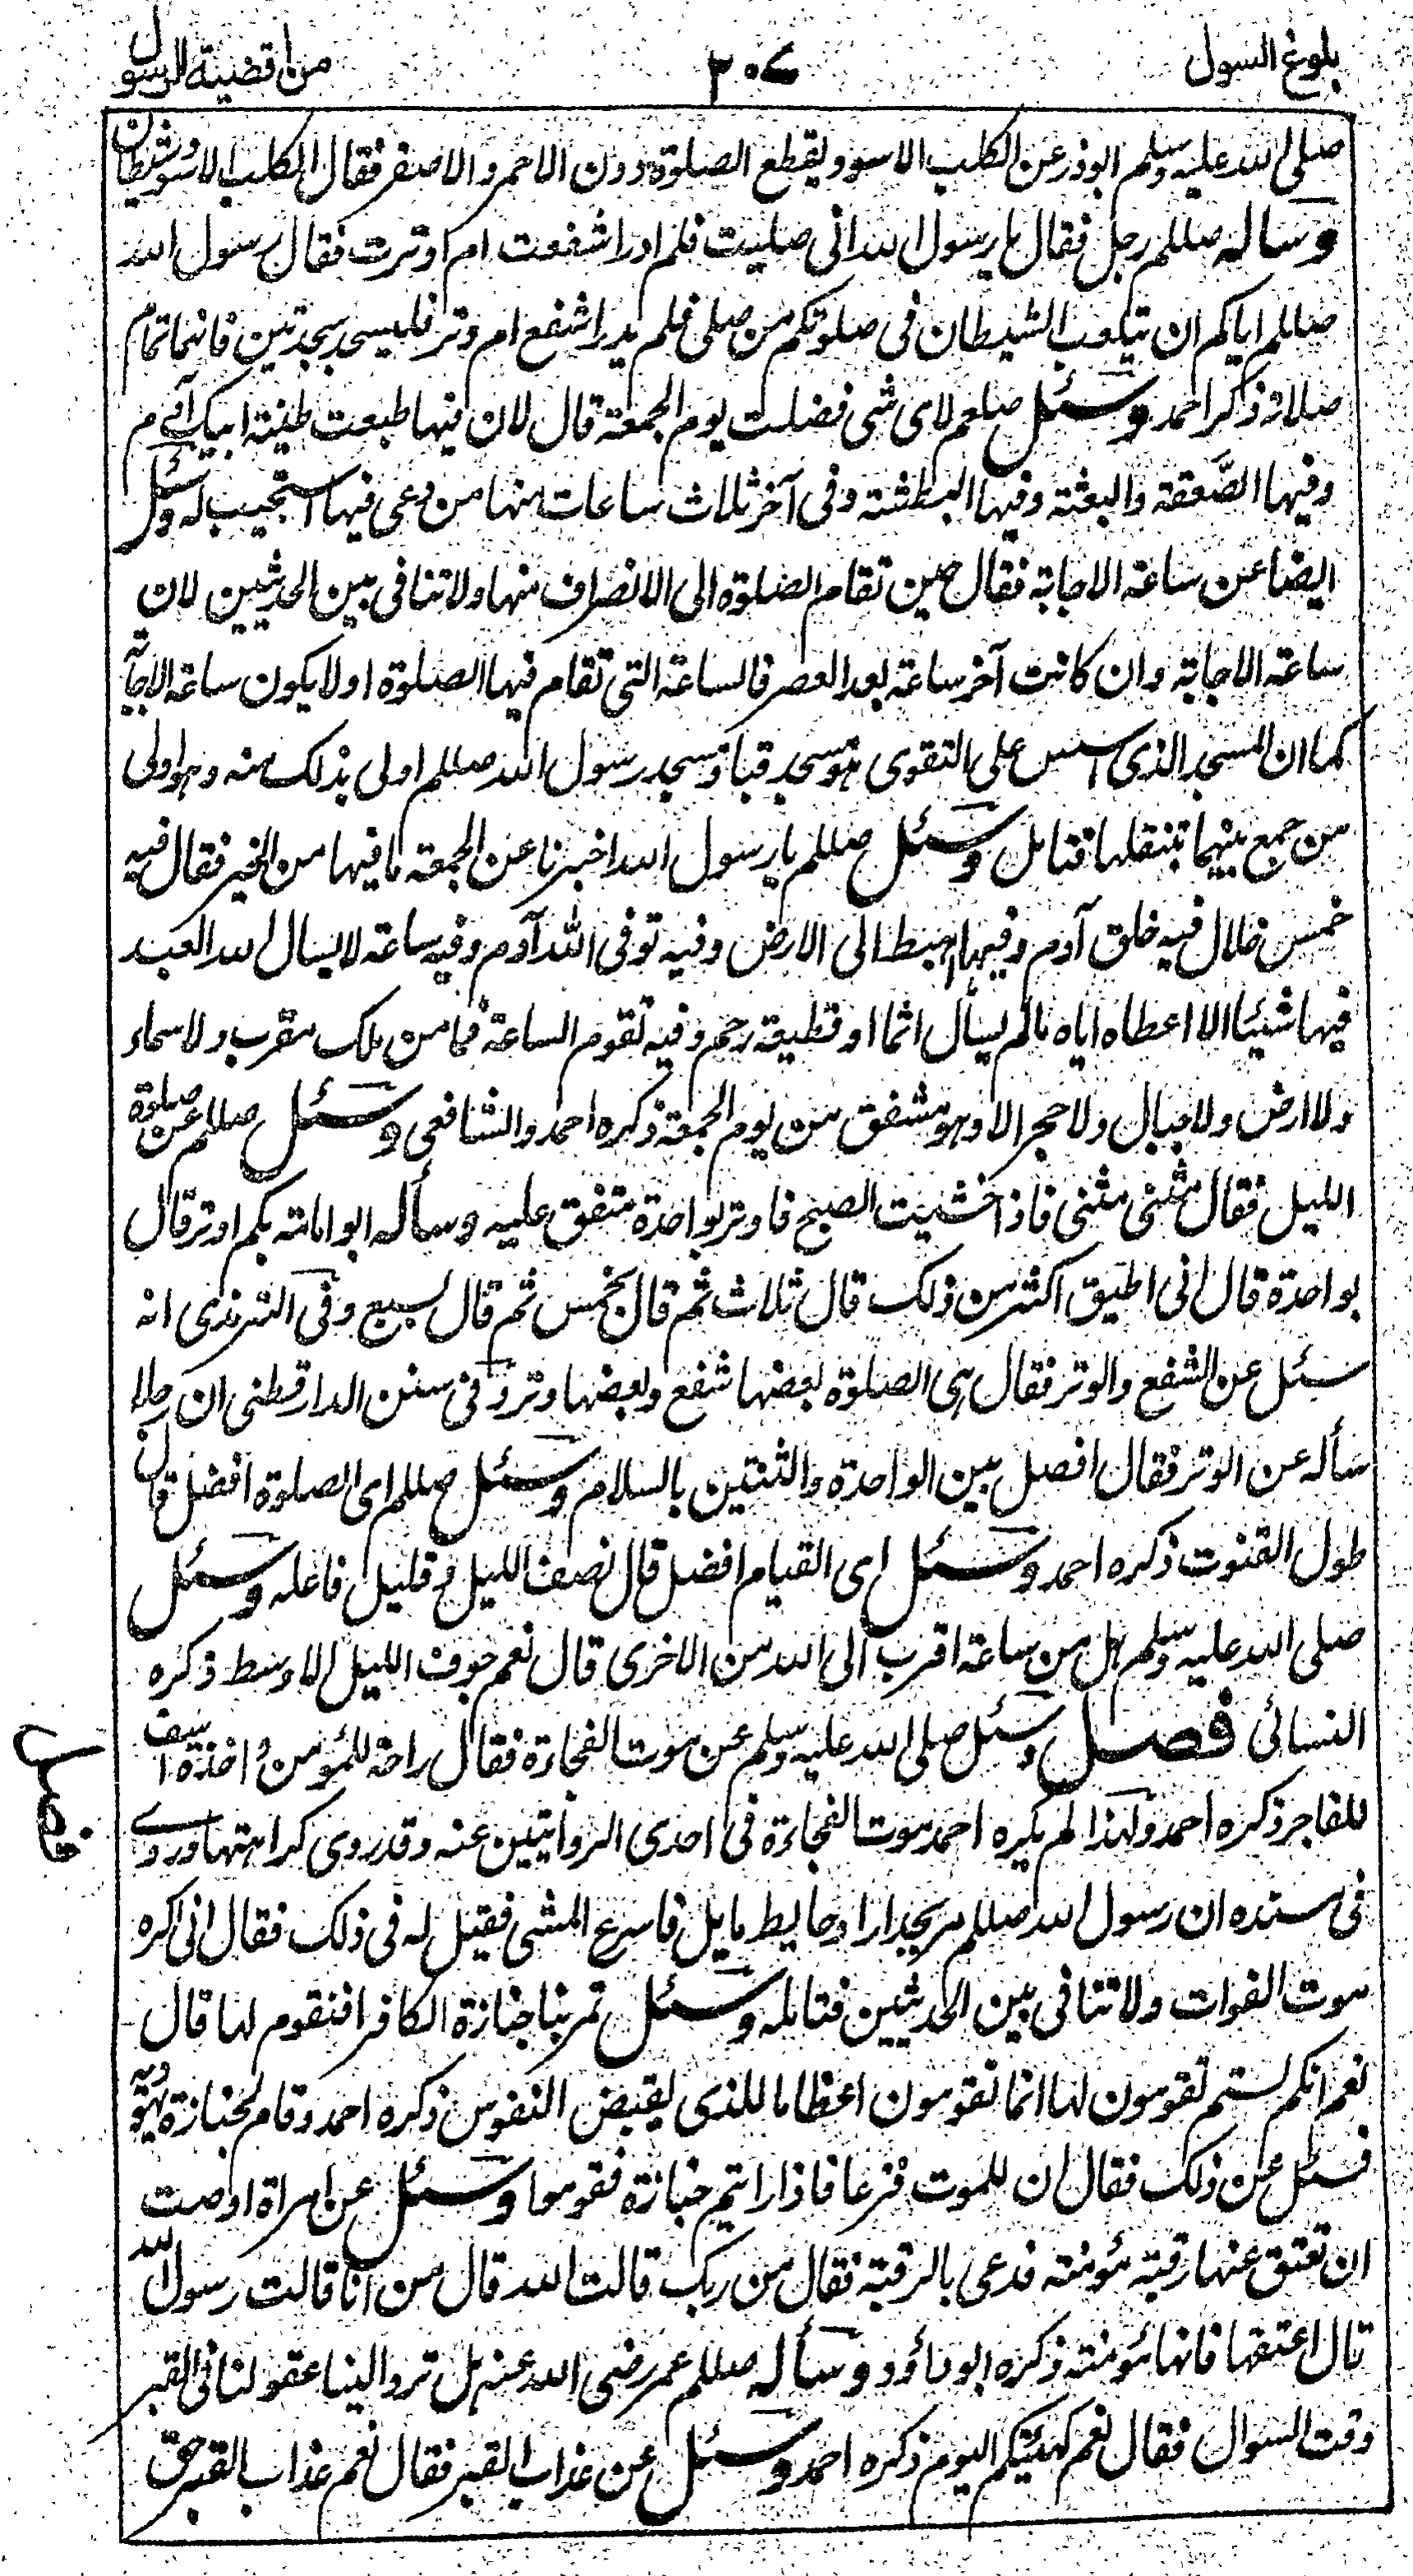 بلوغ السول
٣٠٧
من اقضية الرسول
صلى الله عليه وسلم ابوذر عن الكلب الاسود يقطع الصلوة دون الاحمر والاصفر فقال الكلب الاسود شيطان
وساله صللم رجل فقال يا رسول الله انى صليت فلم ادر اشفعت ام اوترت فقال رسول الله
صللم اياكم ان يتلعب الشيطان فى صلوتكم من صلى فلم يدر اشفع ام وتر فليسجد سجدتين فانهما تمام
صلاته ذكر احمد وسئل صلعم لاى شى فضلت يوم الجمعة قال لان فيها طبعت طينة ابيك آدم
وفيها الصَّعقة والبعثة وفيها البطشة وفى آخر ثلاث ساعات منها من دعى فيها استجيب له وسئل
ايضا عن ساعة الاجابة فقال حين تقام الصلوة الى الانصراف منها ولا تنافى بين الحديثين لان
ساعة الاجابة وان كانت آخر ساعة بعد العصر فالساعة التى تقام فيها الصلوة اولا يكون ساعة الاجابة
كما ان المسجد الذى اسس على التقوى هو مسجد قبا ومسجد رسول الله صللم اولى بذلك منه وهو اولى
من جمع بينهما بتنقلها فتامل وسئل صللم يا رسول الله اخبرنا عن الجمعة ما فيها من الخير فقال فيه
خمس خلال فيه خلق آدم وفيها اهبط الى الارض وفيه توفى الله آدم وفيه ساعة لا يسال الله العبد
فيها شيئا الا اعطاه اياه ما لم يسأل اثما او قطيعة رحم وفيه تقوم الساعة فما من ملك مقرب ولا سماء
ولا ارض ولا جبال ولا حجر الا وهو مشفق من يوم الجمعة ذكره احمد والشافعى وسئل صللم عن صلوة
الليل فقال مثنى مثنى فاذا خشيت الصبح فاوتر بواحدة متفق عليه وسأله ابو امامة بكم اوتر قال
بواحدة قال انى اطيق اكثر من ذلك قال ثلاث ثم قال بخمس ثم قال بسبع وفى الترمذى انه
سئل عن الشفع والوتر فقال هى الصلوة بعضها شفع وبعضها وتر وفى سنن الدارقطنى ان رجلا
سأله عن الوتر فقال افصل بين الواحدة والثنتين بالسلام وسئل صللم اى الصلوة افضل قال
طول القنوت ذكره احمد وسئل اى القيام افضل قال نصف الليل وقليل فاعله وسئل
صلى الله عليه وسلم هل من ساعة اقرب الى الله من الاخرى قال نعم جوف الليل الاوسط ذكره
النسائى فصل وسئل صلى الله عليه وسلم عن موت الفجاءة فقال راحة للمؤمن واخذة اسف
فصل
للفاجر ذكره احمد ولهذا لم يكره احمد موت الفجاءة فى احدى الروايتين عنه وقد روى كراهتها وروى
فى مسنده ان رسول الله صللم مر بجدار او حايط مايل فاسرع المشى فقيل له فى ذلك فقال انى اكره
موت الفوات ولا تنافى بين الحديثين فتامله وسئل تمر بنا جنازة الكافر افنقوم لها قال
نعم انكم لستم تقومون لها انما تقومون اعظاما للذى يقبض النفوس ذكره احمد وقام لجنازة يهودية
فسئل عن ذلك فقال ان للموت فزعا فاذا رايتم جنازة فقوموا وسئل عن امراة اوصت
ان تعتق عنها رقبة مؤمنة فدعى بالرقبة فقال من ربك قالت الله قال من انا قالت رسول الله
قال اعتقها فانها مؤمنة ذكره ابو داؤد وسأله صللم عمر رضى الله عنه هل ترد الينا عقولنا فى القبر
وقت السوال فقال نعم كهيئتكم اليوم ذكره احمد وسئل عن عذاب القبر فقال نعم عذاب القبر حق